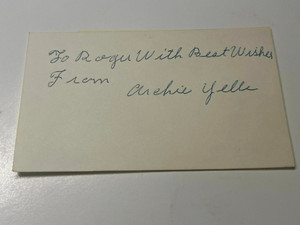 To Roger With Best Wishes
From Archie Yelle